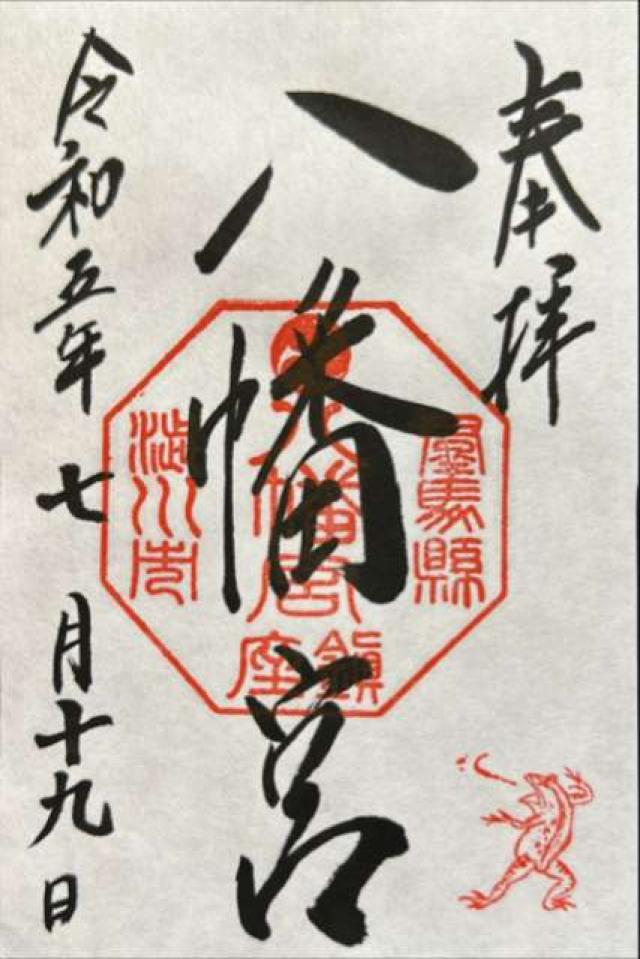 奉拝
八幡宮
群馬縣
八幡宮
鎮座
渋川市
令和五年七月十九日